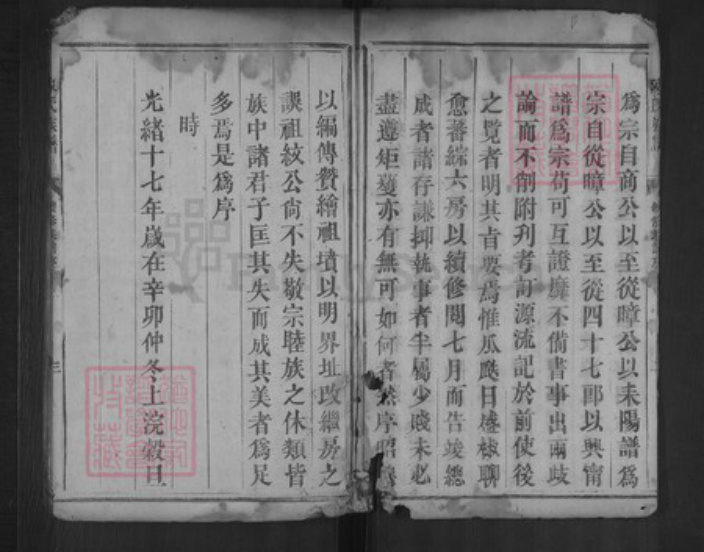 爲宗自商公以至從暲公以耒陽譜爲
宗自從暲公以至從四十七郎以興甯
譜爲宗苟可互證靡不備書事出兩歧
論而不削附刋考訂源流記於前使後
之覽者明其㫖要焉惟瓜瓞日盛椒聊
愈蕃綜六房以續修閱七月而告竣總
成者諸存謙抑執事者半屬少賤未必
盡遵矩矱亦有無可如何者 序昭穆
以編傳贊繪祖墳以明界址改繼房之
誤祖紋公尙不失敬宗睦族之休類皆
族中諸君子匡其失而成其美者爲足
多焉是爲序
時
光緒十七年歲在辛卯仲冬上浣穀旦